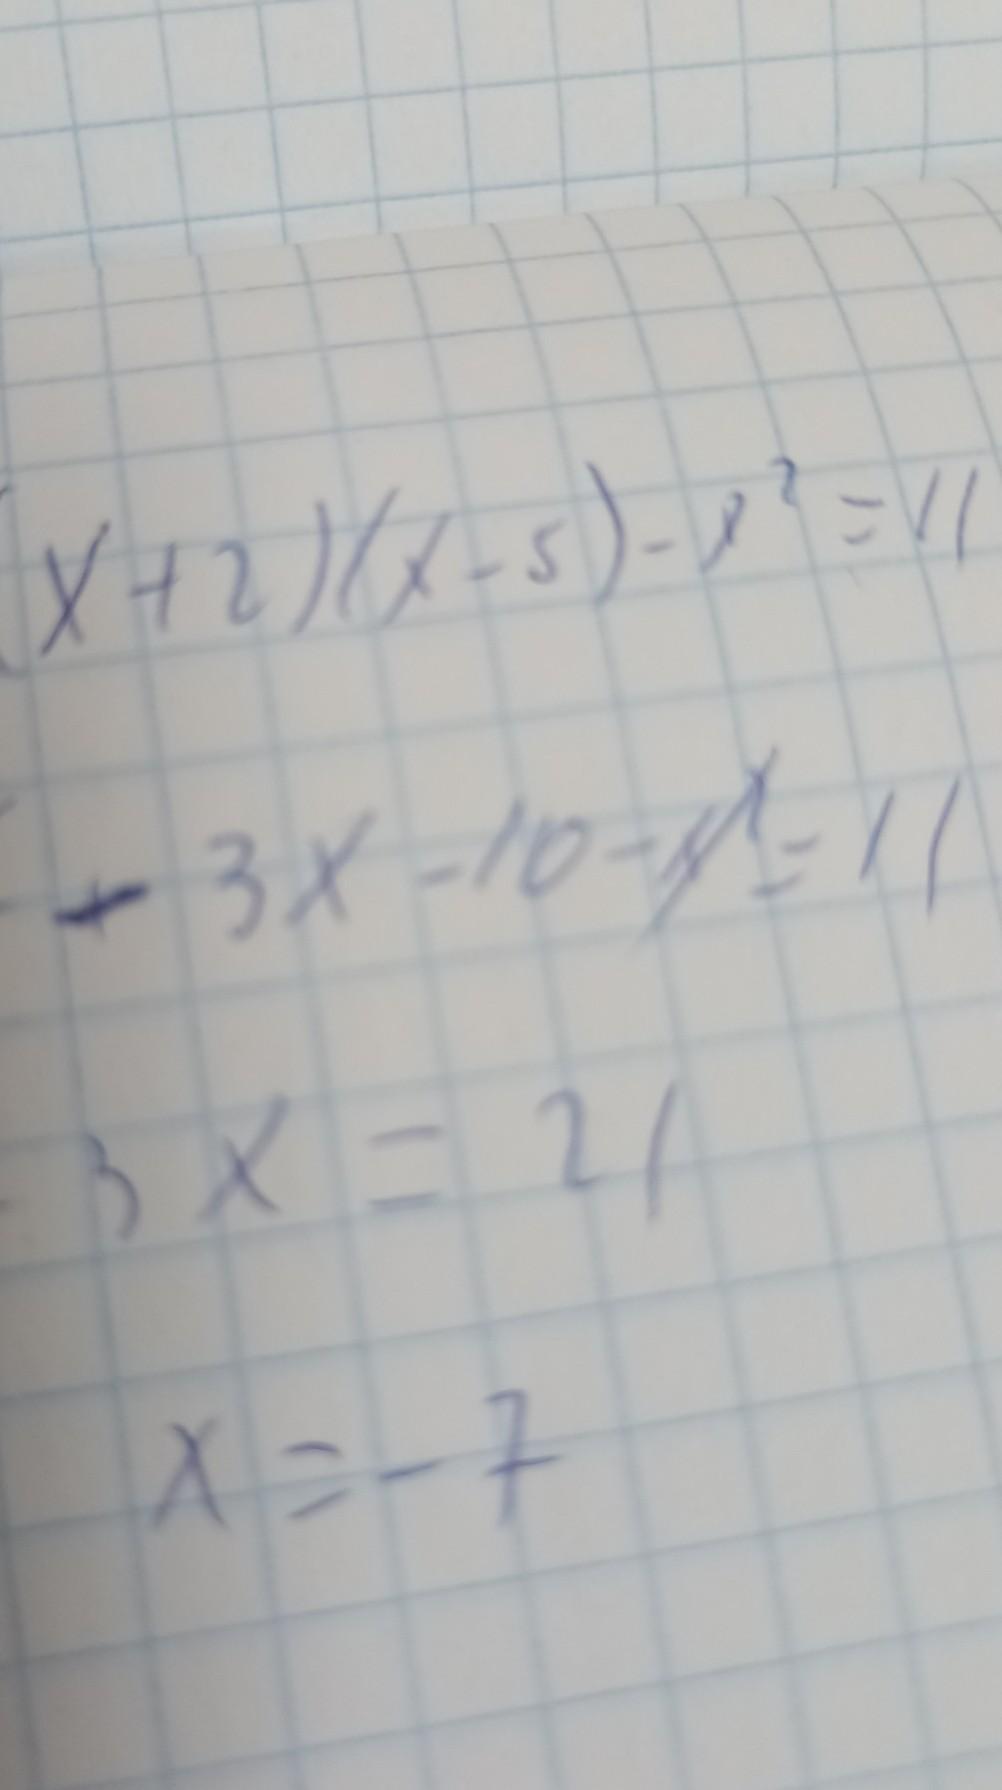 (x+2)(x-5)-x²=11
- 3x-10-x²=11
- 3x=21
x=-7